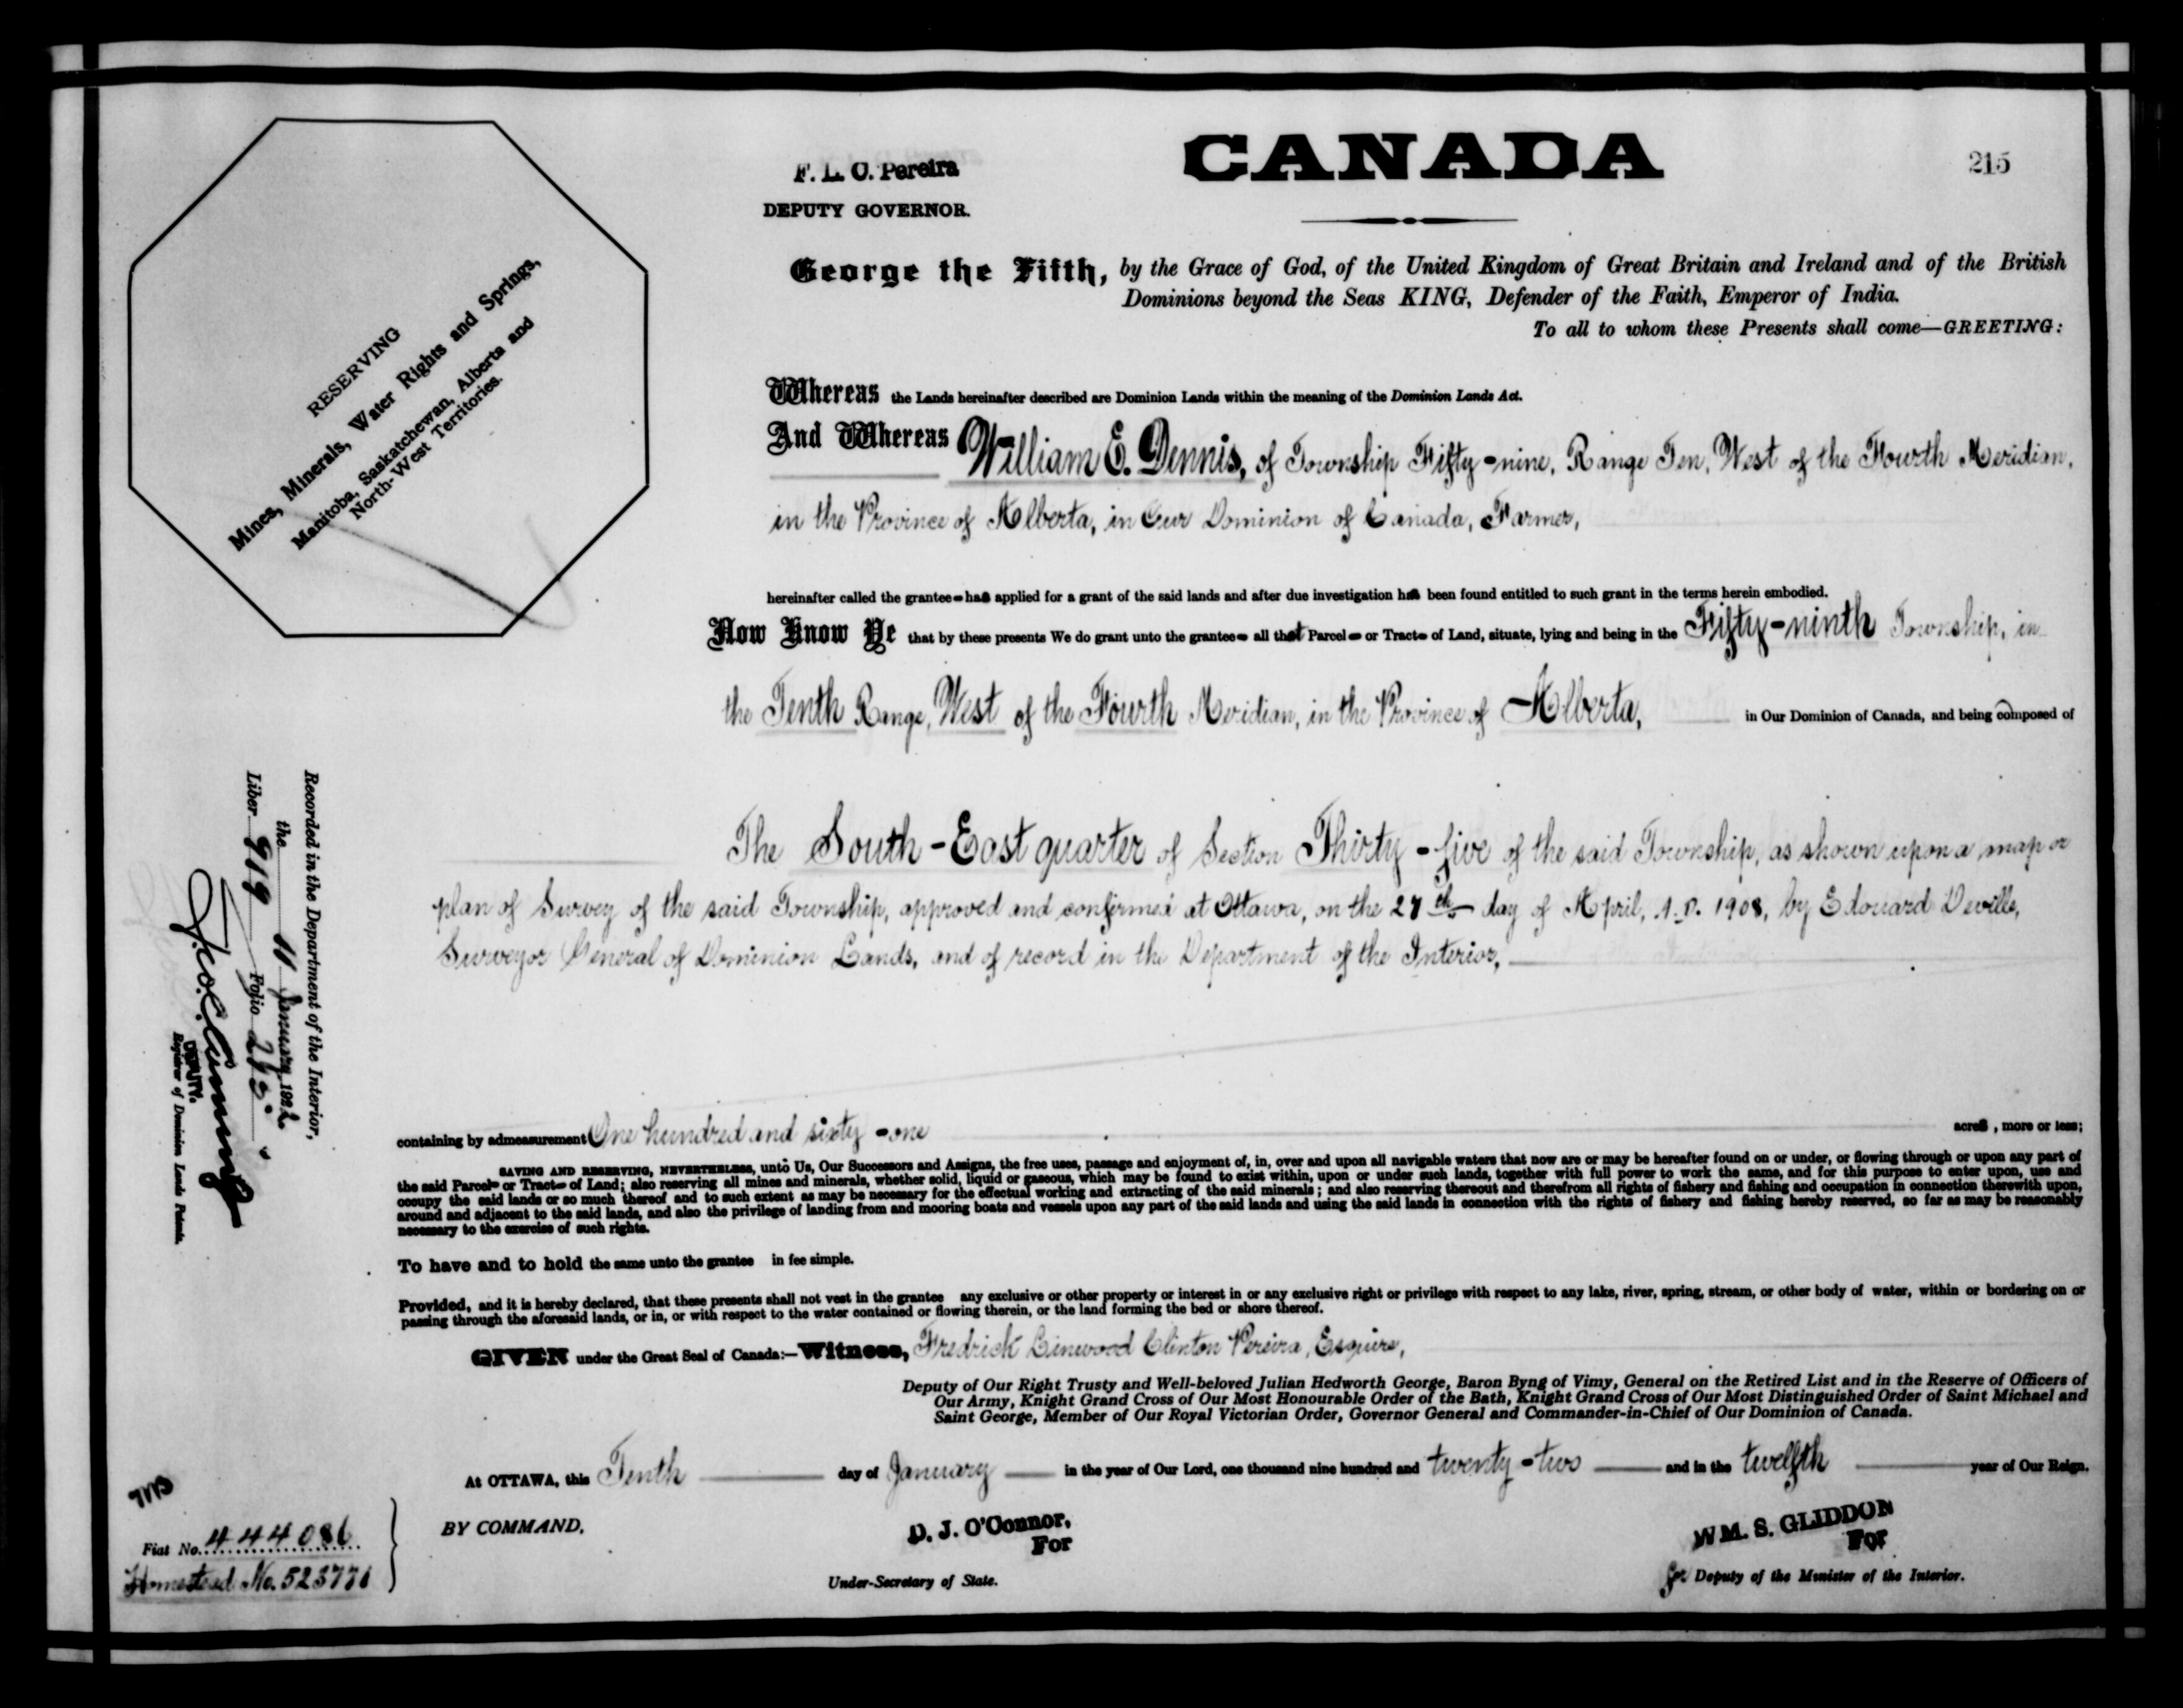 CANADA
215
F. L. C. Pereira
DEPUTY GOVERNOR.
George the Fifth, by the Grace of God, of the United Kingdom of Great Britain and Ireland and of the British
Dominions beyond the Seas KING, Defender of the Faith, Emperor of India.
To all to whom these Presents shall come—GREETING:
RESERVING
Mines, Minerals, Water Rights and Springs,
Manitoba, Saskatchewan, Alberta and
North-West Territories.
Whereas the Lands hereinafter described are Dominion Lands within the meaning of the Dominion Lands Act.
And Whereas William E. Dennis, of Township Fifty-nine, Range Ten, West of the Fourth Meridian,
in the Province of Alberta, in Our Dominion of Canada, Farmer,
hereinafter called the grantee has applied for a grant of the said lands and after due investigation has been found entitled to such grant in the terms herein embodied.
Now Know Ye that by these presents We do grant unto the grantee all that Parcel or Tract of Land, situate, lying and being in the Fifty-ninth Township, in
the Tenth Range, West of the Fourth Meridian, in the Province of Alberta, in Our Dominion of Canada, and being composed of
The South-East quarter of Section Thirty-five of the said Township, as shown upon a map or
plan of Survey of the said Township, approved and confirmed at Ottawa, on the 27th day of April, A.D. 1908, by Edouard Deville,
Surveyor General of Dominion Lands, and of record in the Department of the Interior,
Recorded in the Department of the Interior,
the 11 January 1922
Liber 919 Folio 215
DEPUTY.
Registrar of Dominion Lands Patents.
containing by admeasurement One hundred and sixty-one acres, more or less;
SAVING AND RESERVING, NEVERTHELESS, unto Us, Our Successors and Assigns, the free uses, passage and enjoyment of, in, over and upon all navigable waters that now are or may be hereafter found on or under, or flowing through or upon any part of
the said Parcel or Tract of Land; also reserving all mines and minerals, whether solid, liquid or gaseous, which may be found to exist within, upon or under such lands, together with full power to work the same, and for this purpose to enter upon, use and
occupy the said lands or so much thereof and to such extent as may be necessary for the effectual working and extracting of the said minerals; and also reserving thereout and therefrom all rights of fishery and fishing and occupation in connection therewith upon,
around and adjacent to the said lands, and also the privilege of landing from and mooring boats and vessels upon any part of the said lands and using the said lands in connection with the rights of fishery and fishing hereby reserved, so far as may be reasonably
necessary to the exercise of such rights.
To have and to hold the same unto the grantee in fee simple.
Provided, and it is hereby declared, that these presents shall not vest in the grantee any exclusive or other property or interest in or any exclusive right or privilege with respect to any lake, river, spring, stream, or other body of water, within or bordering on or
passing through the aforesaid lands, or in, or with respect to the water contained or flowing therein, or the land forming the bed or shore thereof.
GIVEN under the Great Seal of Canada:—Witness, Fredrick Linwood Clinton Pereira, Esquire,
Deputy of Our Right Trusty and Well-beloved Julian Hedworth George, Baron Byng of Vimy, General on the Retired List and in the Reserve of Officers of
Our Army, Knight Grand Cross of Our Most Honourable Order of the Bath, Knight Grand Cross of Our Most Distinguished Order of Saint Michael and
Saint George, Member of Our Royal Victorian Order, Governor General and Commander-in-Chief of Our Dominion of Canada.
At OTTAWA, this Tenth day of January in the year of Our Lord, one thousand nine hundred and twenty-two and in the twelfth year of Our Reign.
BY COMMAND,
D. J. O'Connor,
For
Under-Secretary of State.
WM. S. GLIDDON
For
for Deputy of the Minister of the Interior.
Fiat No. 444086
Homestead No. 523771